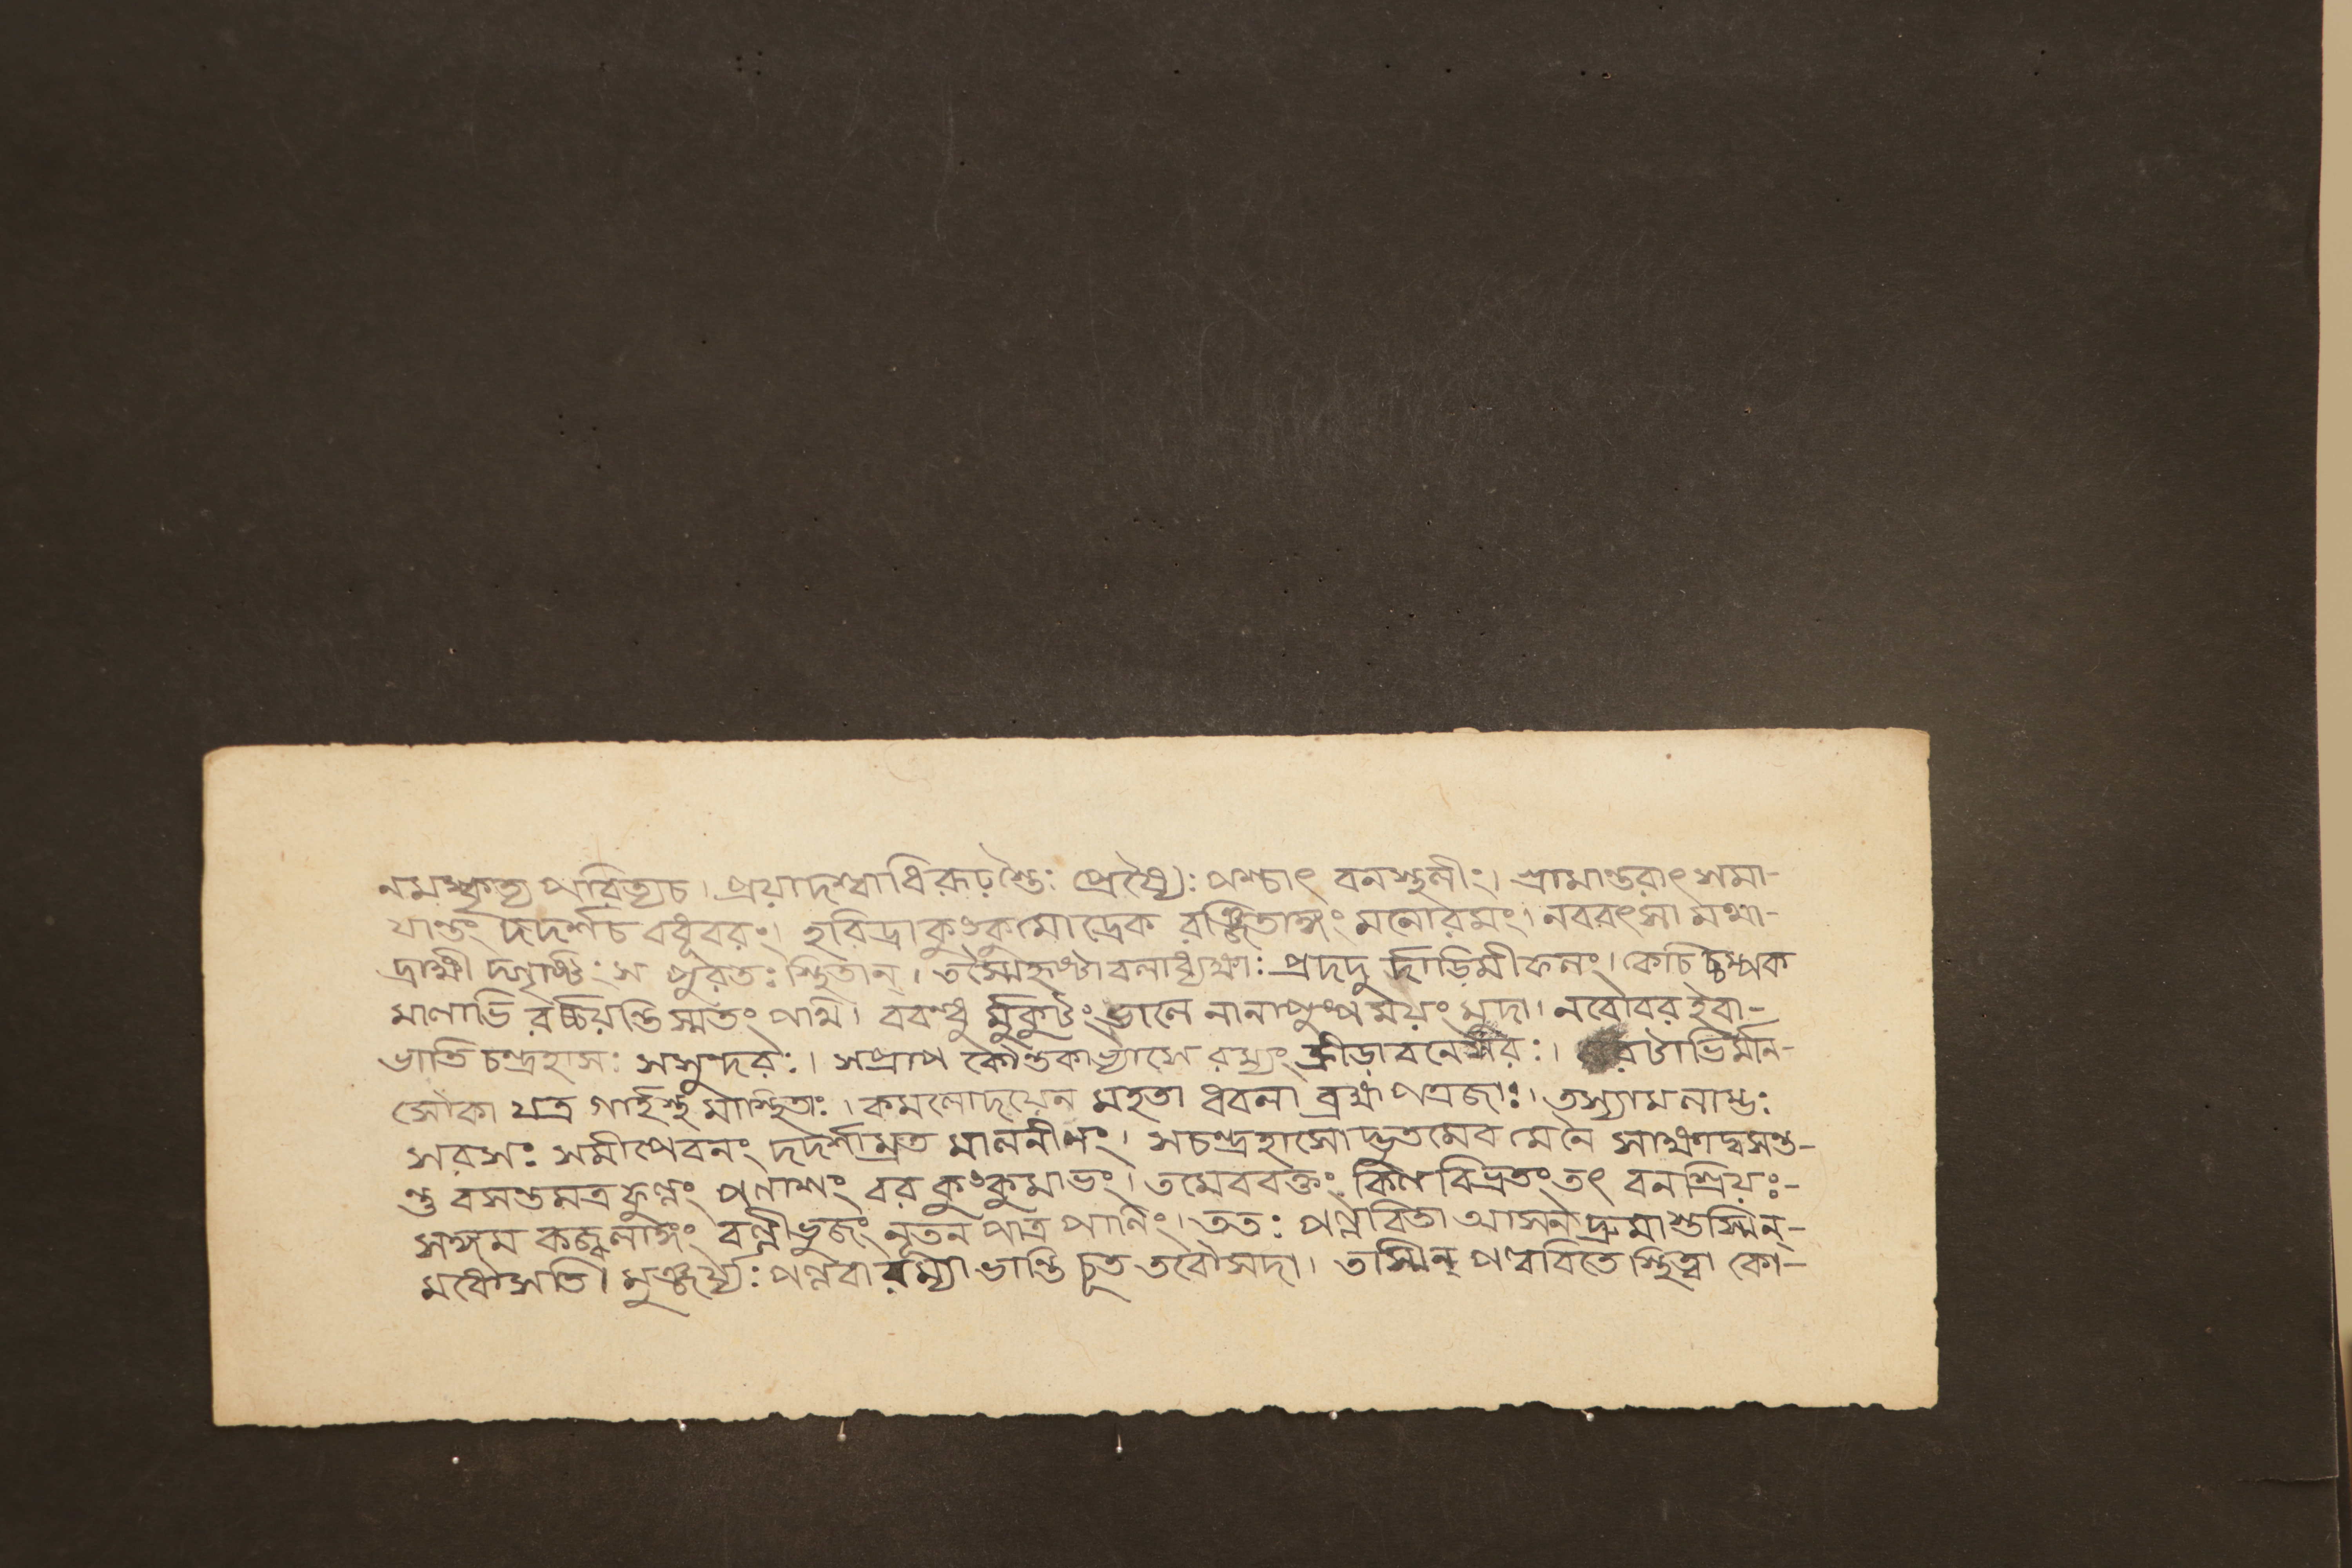 নমস্কৃত্য পরিত্যচ। প্রয়াদশ্বাধিরূঢ়শ্তৈঃ প্রেষ্যৈঃ পশ্চাৎ বনস্থলীং। গ্রামান্তরাৎ সমা-
যান্তং দদর্শচ বধূবরং। হরিদ্রাকুংকুমোদ্রেক রঞ্জিতাঙ্গং মনোরমং। নবরৎসা মথা-
দ্রাক্ষী দ্গৃষ্টিঃ স পুরতঃ স্থিতান্। তস্মৈহৃষ্টা বলাধ্যক্ষাঃ প্রদদু র্দাড়িমীফলং। কেচি চ্চম্পক
মালাভি রর্চ্চয়ন্তিস্মতং পথি। ববন্ধু র্মুকুটং ভালে নানাপুষ্পময়ং মুদা। নবোবর ইবা-
ভাতি চন্দ্রহাসঃ সসুন্দরঃ। সপ্রাপ কৌন্তকাভ্যাসে রম্যং ক্রীড়াবনেসরঃ। রটাভির্মান-
সৌকা যত্র গার্হস্থ মাস্থিতাঃ। কমলোদয়েন মহতা ধবলা ব্রহ্ম পত্রজাঃ। তস্যামলাম্ভঃ
সরসঃ সমীপেবনং দদর্শাম্রত মালনীপং। সচন্দ্রহাসোদ্ভুতমেব মেনে সাক্ষাদ্বসন্ত-
ন্তু বসন্তমত্র ফুল্লং পলাশং বর কুংকুমাভং। তমেববক্তং কিল বিভ্রতং তৎ বনশ্রিয়ঃ-
সঙ্গম কজ্জ্বলাঙ্গং বল্লীভুজং নূতন পত্র পাণিং। ততঃ পল্লবিতা আসন্ দ্রুমাস্তস্মিন্-
মধৌসতি। মঞ্জর্য্যঃ পল্লবা রম্যা ভান্তি চূত তরৌসদা। তস্মিন্ পল্লবিতে স্থিত্বা কো-